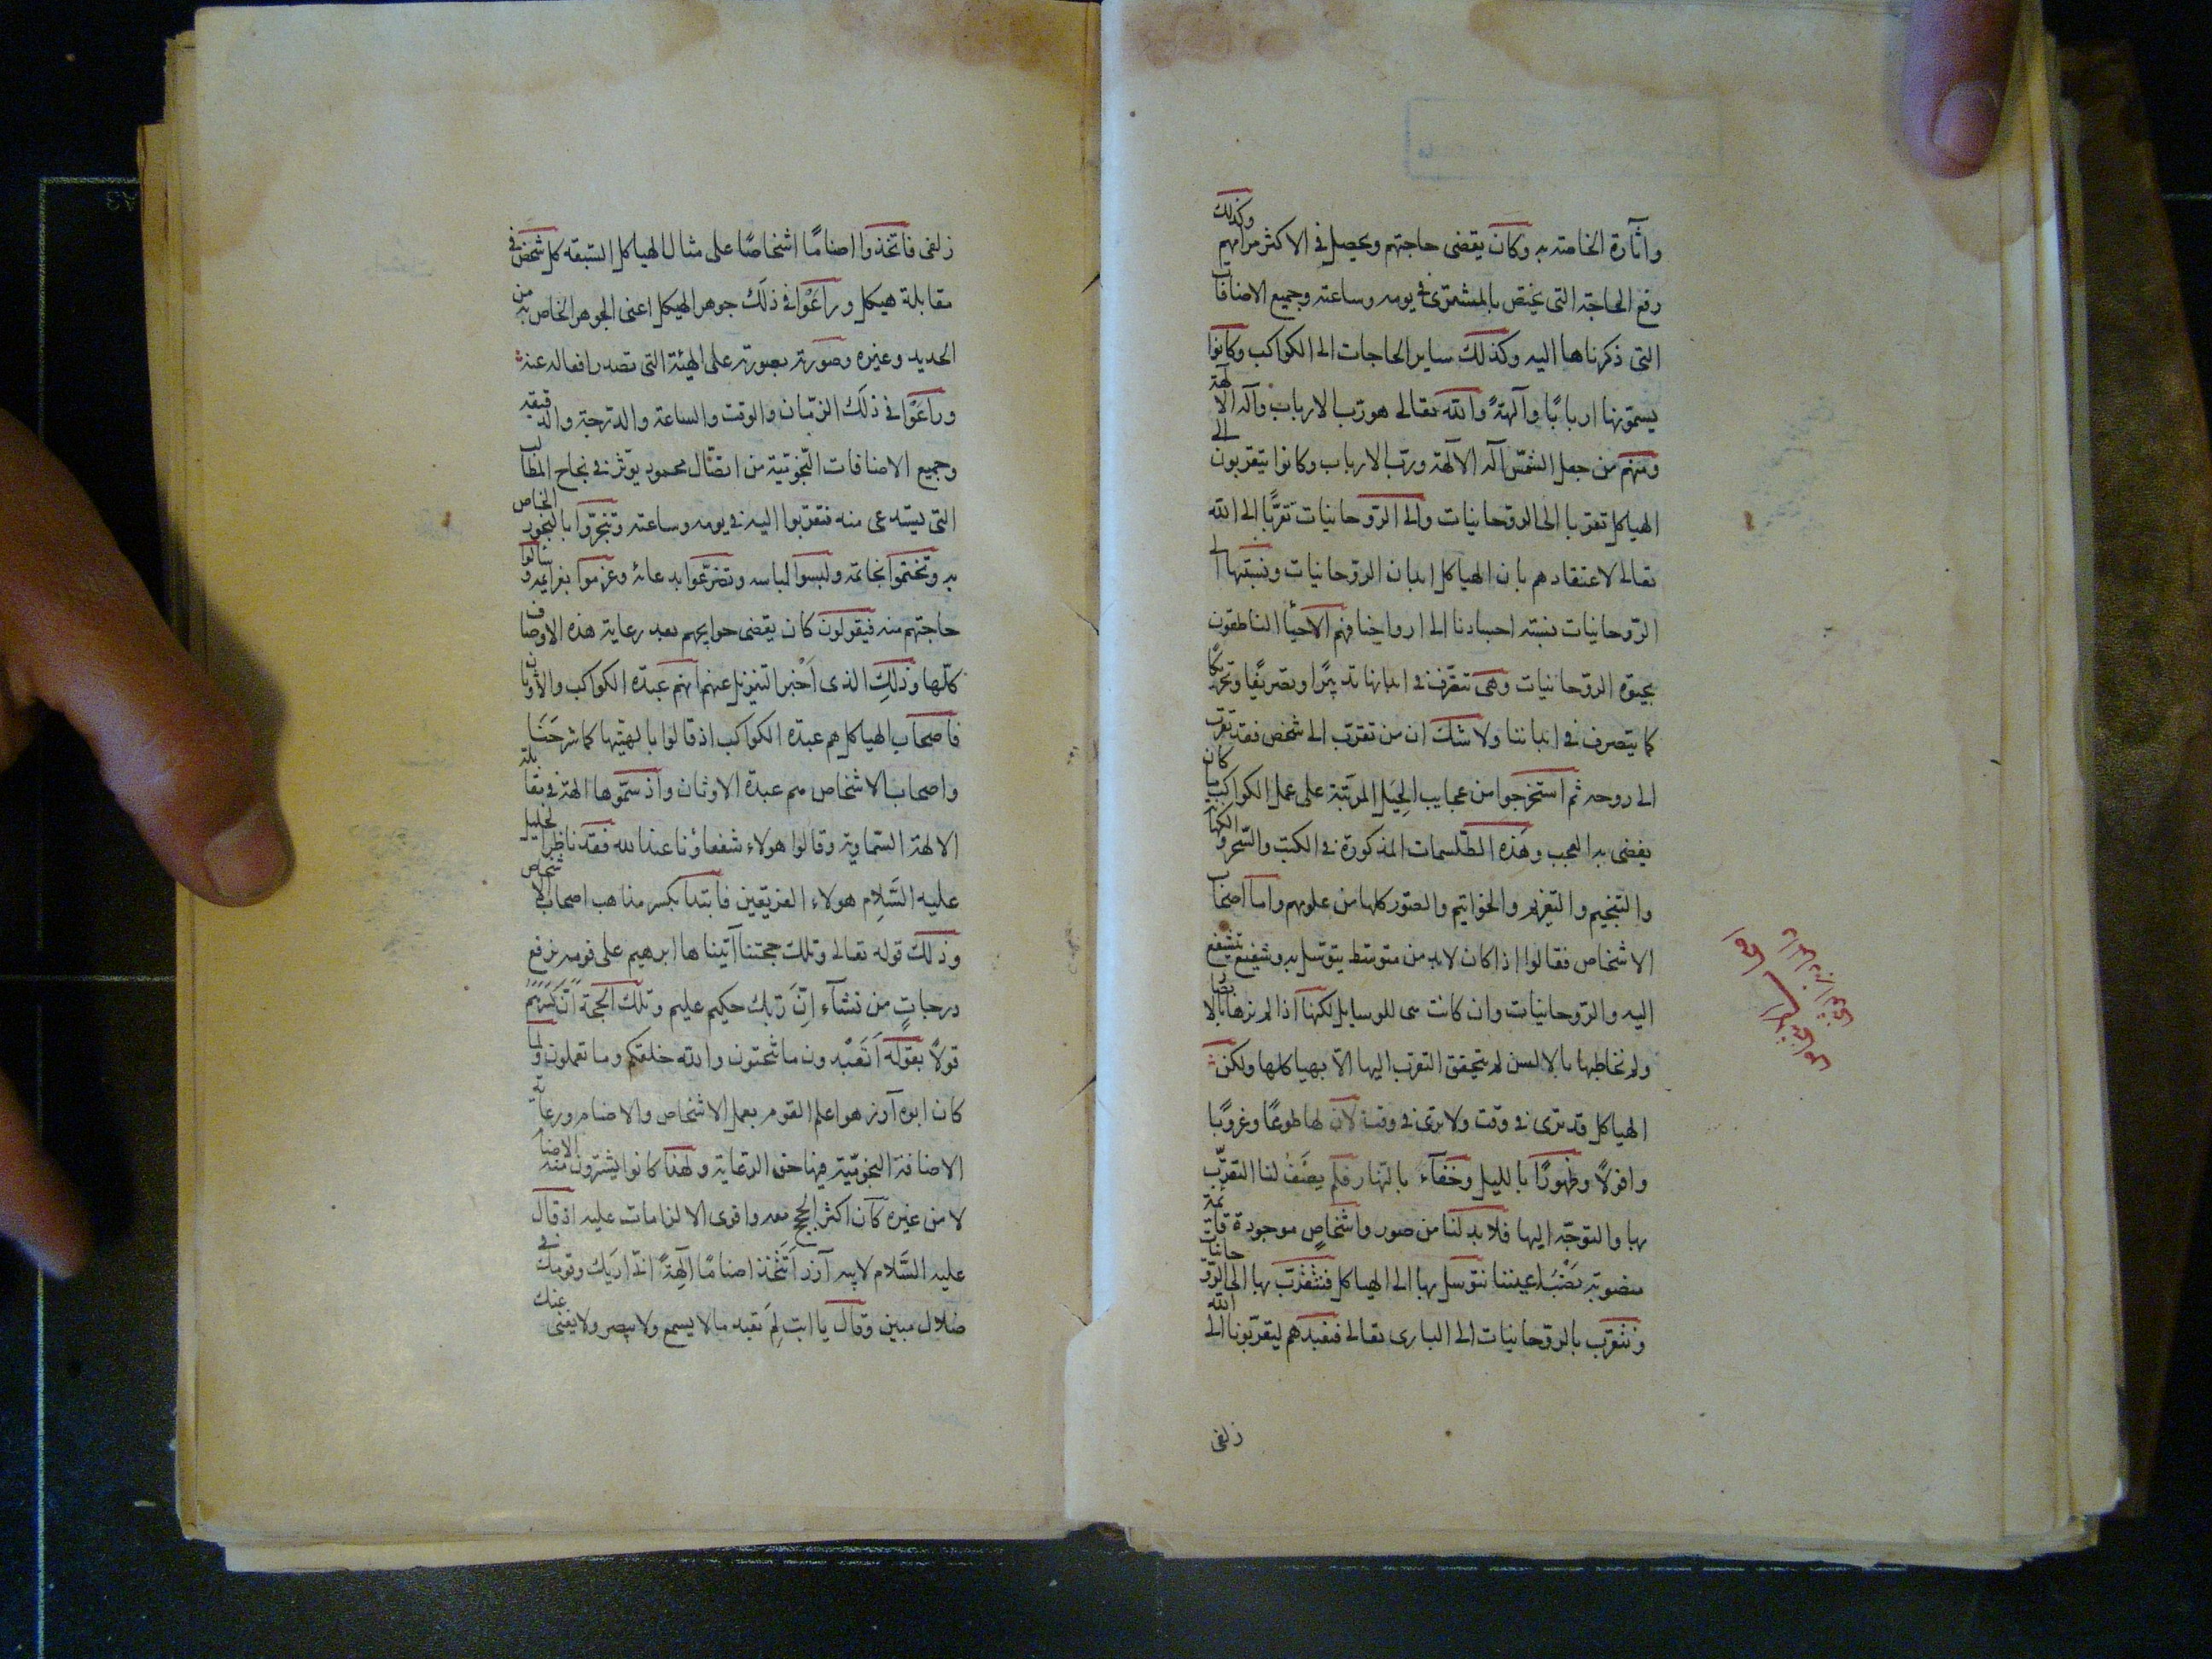 واثارة الخاصة به وكان يقضى حاجتهم ويحصل فى الاكثر مرامهم وكذلك
رفع الحاجة التى يختص بالمشترى فى يومه وساعته وجميع الاضافات
التى ذكرناها اليه وكذلك ساير الحاجات الى الكواكب وكانوا
يسمونها اربابًا وآلهةً والله تعالى هو رب الارباب وآله الآلهة
ومنهم من جعل الشمس آله الآلهة ورب الارباب وكانوا يتقربون الى
الهياكل تقربا الى الروحانيات والى الروحانيات تقربًا الى الله
تعالى لاعتقادهم بان الهياكل ابدان الروحانيات ونسبتها الى
الروحانيات نسبته اجسادنا الى ارواحنا فهم الاحيأ الناطقون
بحيوة الروحانيات وهى تتصرف فى ابدانها تدبيرًا وتصريفًا وتحريكًا
كما يتصرف فى ابداننا ولا شك ان من تقرب الى شخص فقد تقرب
الى روحه ثم استخرجوا من عجايب الحيل المرتبة على عمل الكواكب ما كان
يقضى به العجب وهذه الطلسمات المذكورة فى الكتب والسحر والكهانة
والتنجيم والتعزيم والخواتيم والصور كلها من علومهم واما اصحاب
الاشخاص فقالوا اذا كان لا بد من متوسط يتوسل به وشفيع يتشفع
اليه والروحانيات وان كانت هى الوسايل لكنها اذا لم نرها بالابصار
ولم نخاطبها بالالسن لم يتحقق التقرب اليها الا بهياكلها ولكن
الهياكل قد ترى فى وقت ولا ترى فى وقت لان لها طلوعًا وغروبًا
وافولاً وظهورًا بالليل وخفآء بالنهار فلم يصف لنا التقرب
بها والتوجه اليها فلا بد لنا من صور واشخاصٍ موجودة قائمة
منصوبة نصب اعيننا نتوسل بها الى الهياكل فنتقرب بها الى الروحانيات
ونتقرب بالروحانيات الى البارى تعالى فنعبدهم ليقربونا الى الله
زلفى
زلفى فاتخذوا اصنامًا اشخاصًا على مثال الهياكل السبعة كل شخص فى
مقابلة هيكل وراعوا فى ذلك جوهر الهيكل اعنى الجوهر الخاص به من
الحديد وغيره وصورته بصورته على الهيئة التى تصدر افعاله عنه
وراعوا فى ذلك الزمان والوقت والساعة والدرجة والدقيقة
وجميع الاضافات النجومية من اتصال محمود يوثر فى نجاح المطالب
التى يستدعى منه فتقربوا اليه فى يومه وساعته وتبخروا بالبخور الخاص
به وتختموا بخاتمه ولبسوا لباسه وتضرعوا بدعائه وعزموا بعزايمه وسالوا
حاجتهم منه فيقولون كان يقضى حوايجهم بعد رعاية هذه الاوصاف
كلها وذلك الذى اخبر التنزيل عنهم انهم عبدة الكواكب والاوثان
فاصحاب الهياكل هم عبدة الكواكب اذ قالوا بالهيتها كما شرحنا
واصحاب الاشخاص هم عبدة الاوثان واذ سموها الهة فى مقابلة
الالهة السماوية وقالوا هولاء شفعاؤنا عند الله فقد ناظر الخليل
عليه السلام هولاء الفريقين فابتدا بكسر مذاهب اصحاب الاشخاص
وذلك قوله تعالى وتلك حجتنا آتيناها ابرهيم على قومه نرفع
درجاتٍ من نشآء ان ربك حكيم عليم وتلك الحجة ان كسرهم
قولاً بقوله اتعبدون ما تنحتون والله خلقكم وما تعملون ولما
كان ابوه آزر هو اعلم القوم بعمل الاشخاص والاصنام ورعاية
الاضافة النجومية فيها حق الرعاية ولهذا كانوا يشترون منه الاصنام
لا من غيره كان اكثر الحجج معه واقوى الالزامات عليه اذ قال
عليه السلام لابيه آزر اتتخذ اصنامًا آلهةً انى اريك وقومك فى
ضلال مبين وقال يا ابت لم تعبد ما لا يسمع ولا يبصر ولا يغنى عنك